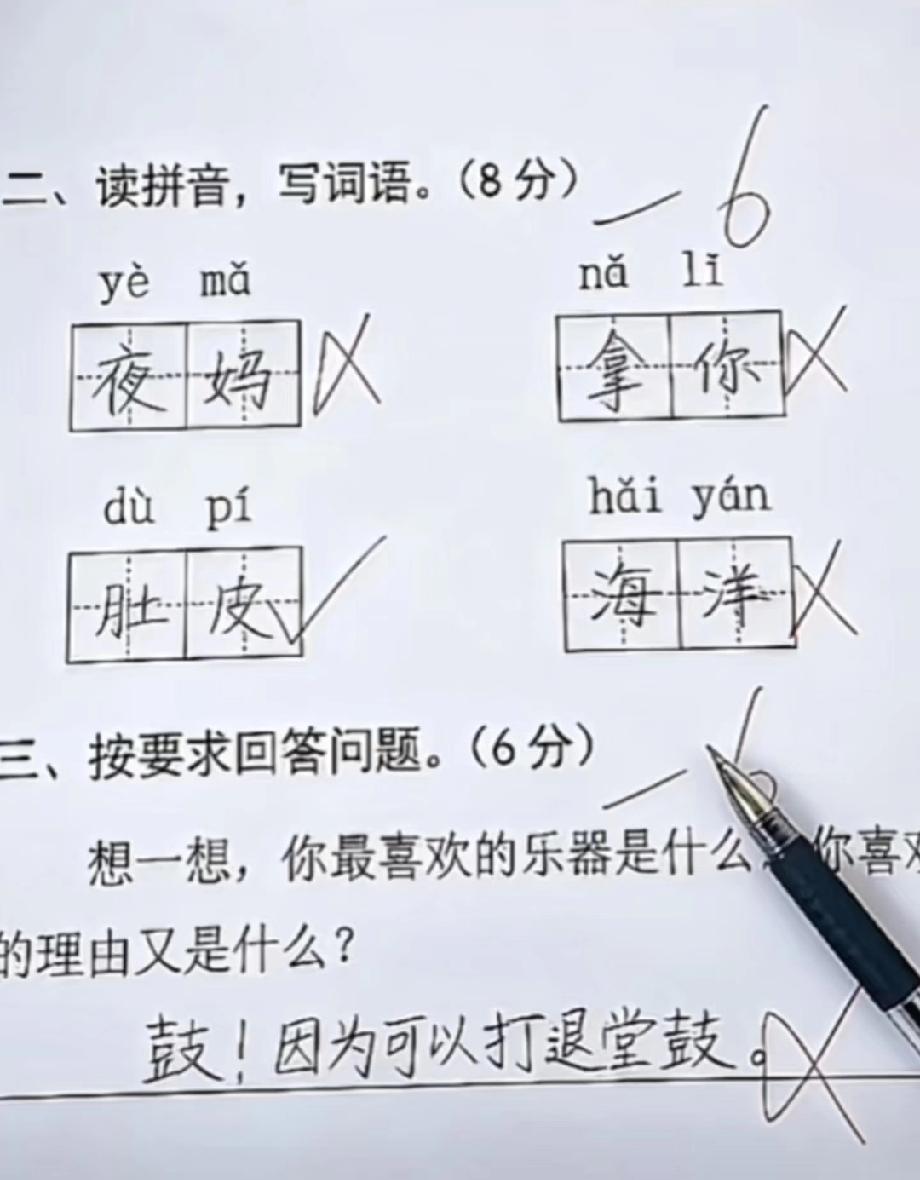 二、读拼音，写词语。（8分） －6
yè mǎ nǎ lǐ
夜妈 拿你
dù pí hǎi yán
肚皮 海洋
三、按要求回答问题。（6分） －6
想一想，你最喜欢的乐器是什么？你喜欢
的理由又是什么？
鼓！因为可以打退堂鼓。